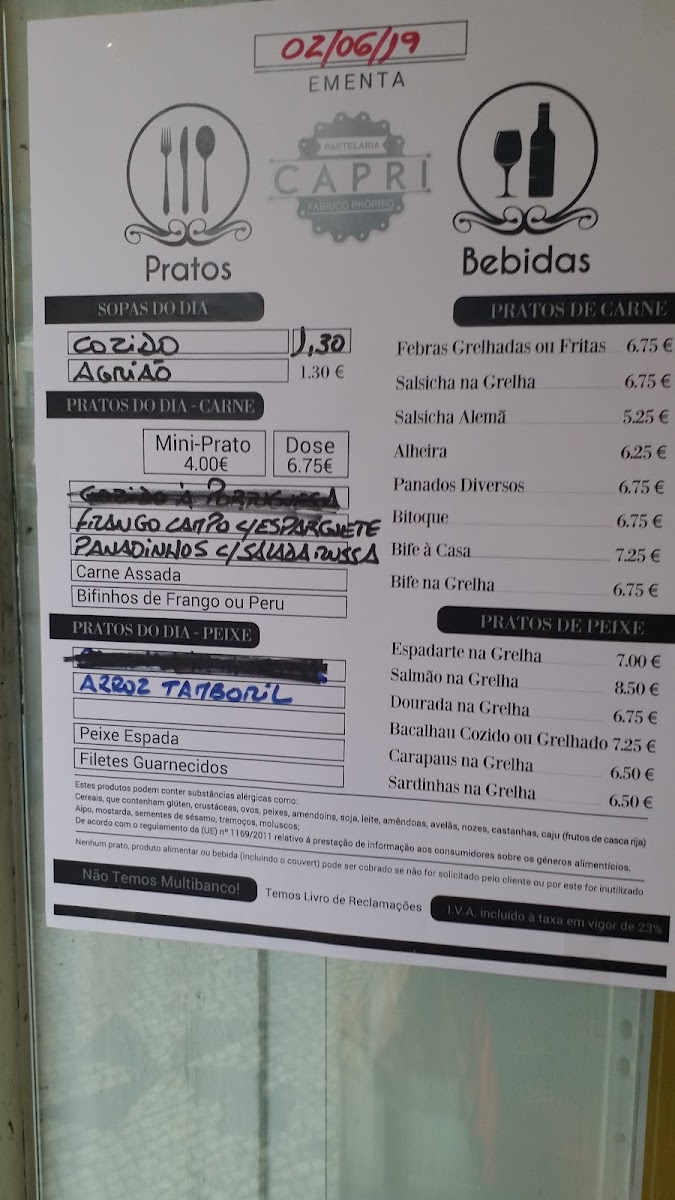 02/06/19
EMENTA
PASTELARIA
CAPRI
FABRICO PRÓPRIO
Pratos
Bebidas
SOPAS DO DIA
COZIDO 1,30
AGRIÃO 1.30 €
PRATOS DO DIA - CARNE
Mini-Prato 4.00€
Dose 6.75€
COZIDO À PORTUGUESA
FRANGO CAMPO C/ESPARGUETE
PANADINHOS C/SALADA RUSSA
Carne Assada
Bifinhos de Frango ou Peru
PRATOS DO DIA - PEIXE
ARROZ TAMBORIL
Peixe Espada
Filetes Guarnecidos
PRATOS DE CARNE
Febras Grelhadas ou Fritas 6.75 €
Salsicha na Grelha 6.75 €
Salsicha Alemã 5.25 €
Alheira 6.25 €
Panados Diversos 6.75 €
Bitoque 6.75 €
Bife à Casa 7.25 €
Bife na Grelha 6.75 €
PRATOS DE PEIXE
Espadarte na Grelha 7.00 €
Salmão na Grelha 8.50 €
Dourada na Grelha 6.75 €
Bacalhau Cozido ou Grelhado 7.25 €
Carapaus na Grelha 6.50 €
Sardinhas na Grelha 6.50 €
Estes produtos podem conter substâncias alérgicas como:
Cereais, que contenham glúten, crustáceos, ovos, peixes, amendoins, soja, leite, amêndoas, avelãs, nozes, castanhas, caju (frutos de casca rija)
Aipo, mostarda, sementes de sésamo, tremoços, moluscos;
De acordo com o regulamento da (UE) nº 1169/2011 relativo á prestação de informação aos consumidores sobre os géneros alimentícios.
Nenhum prato, produto alimentar ou bebida (incluindo o couvert) pode ser cobrado se não for solicitado pelo cliente ou por este for inutilizado
Não Temos Multibanco!
Temos Livro de Reclamações
I.V.A. incluído à taxa em vigor de 23%